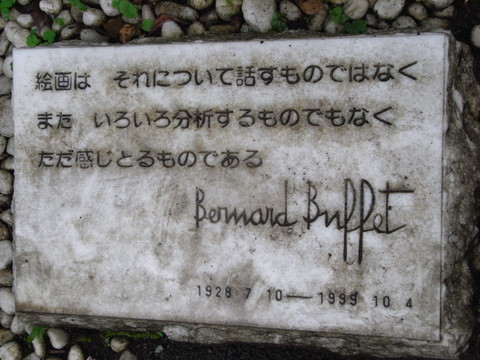 絵画は それについて話すものではなく
また いろいろ分析するものでもなく
ただ感じとるものである
Bernard Buffet
1928 7 10―1999 10 4